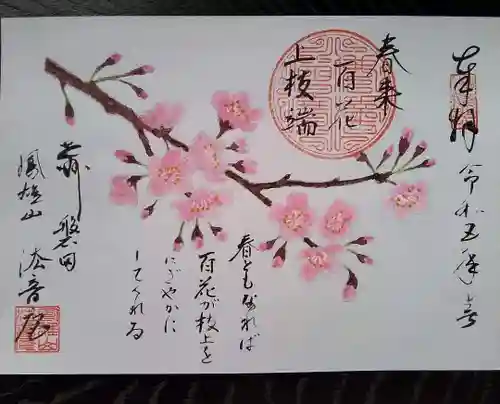 奉拝
令和五年春
春来
百花
上枝端
春ともなれば
百花が枝上を
にぎやかに
してくれる
磐田
鳳雄山 法音